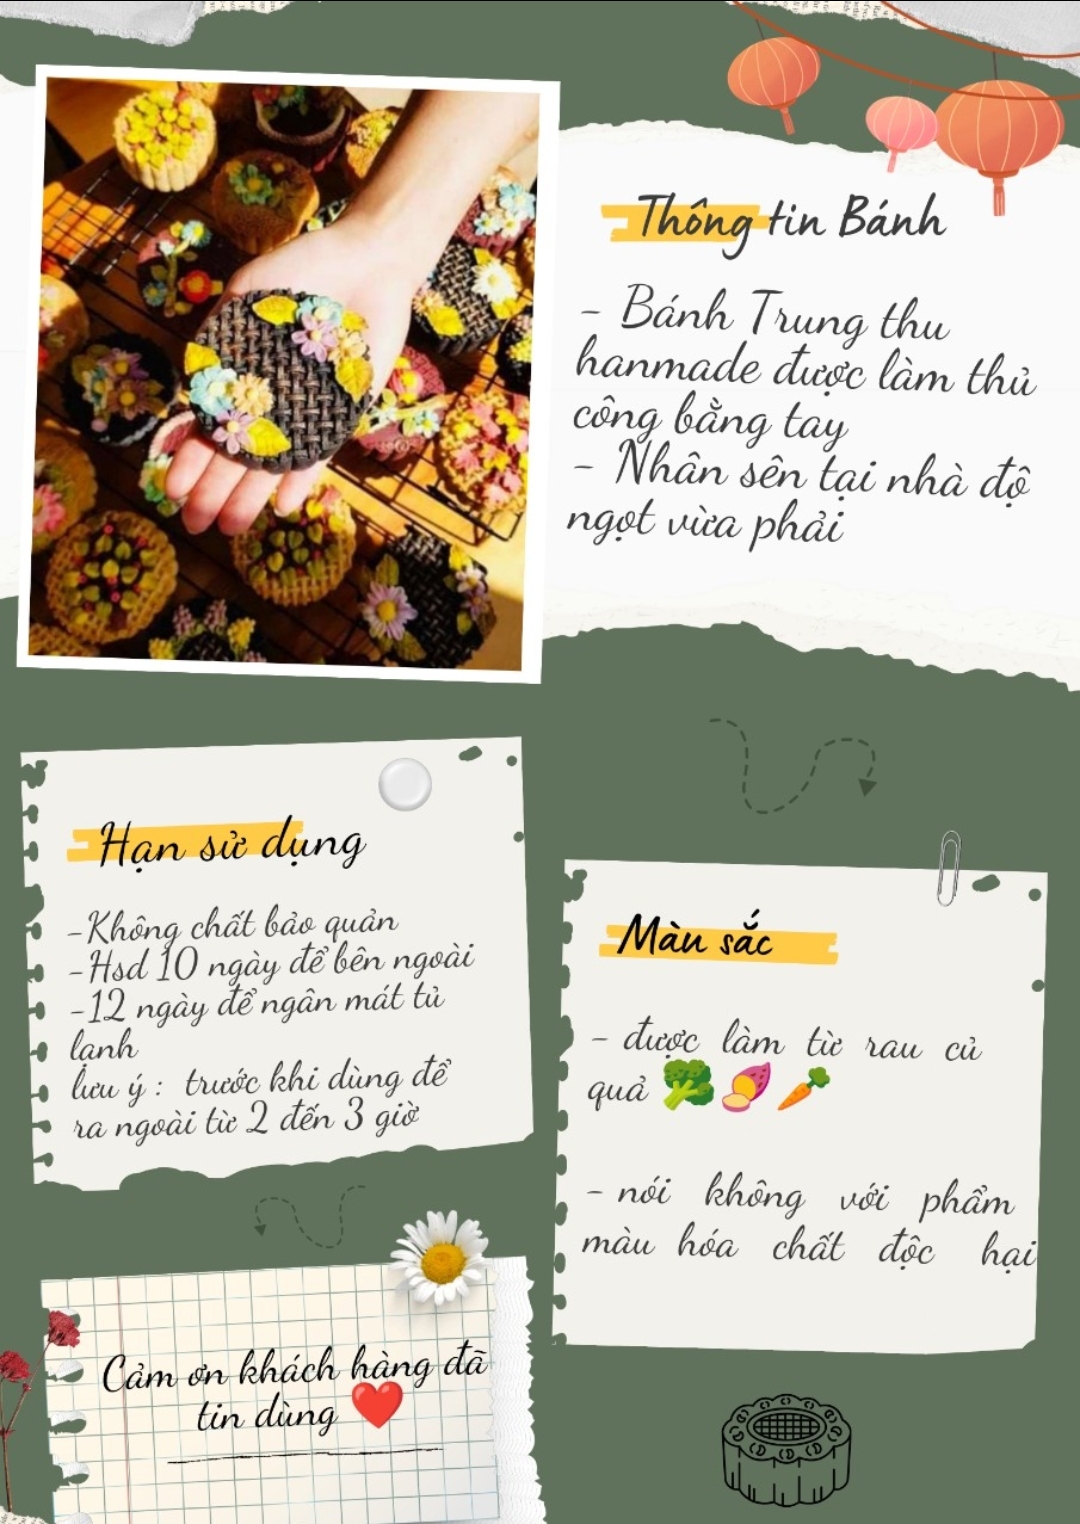 Thông tin Bánh
- Bánh Trung thu
hanmade được làm thủ
công bằng tay
- Nhân sên tại nhà độ
ngọt vừa phải
Hạn sử dụng
-Không chất bảo quản
-Hsd 10 ngày để bên ngoài
-12 ngày để ngân mát tủ
lạnh
lưu ý : trước khi dùng để
ra ngoài từ 2 đến 3 giờ
Màu sắc
- được làm từ rau củ
quả 🥦🍠🥕
- nói không với phẩm
màu hóa chất độc hại
Cảm ơn khách hàng đã
tin dùng ❤️